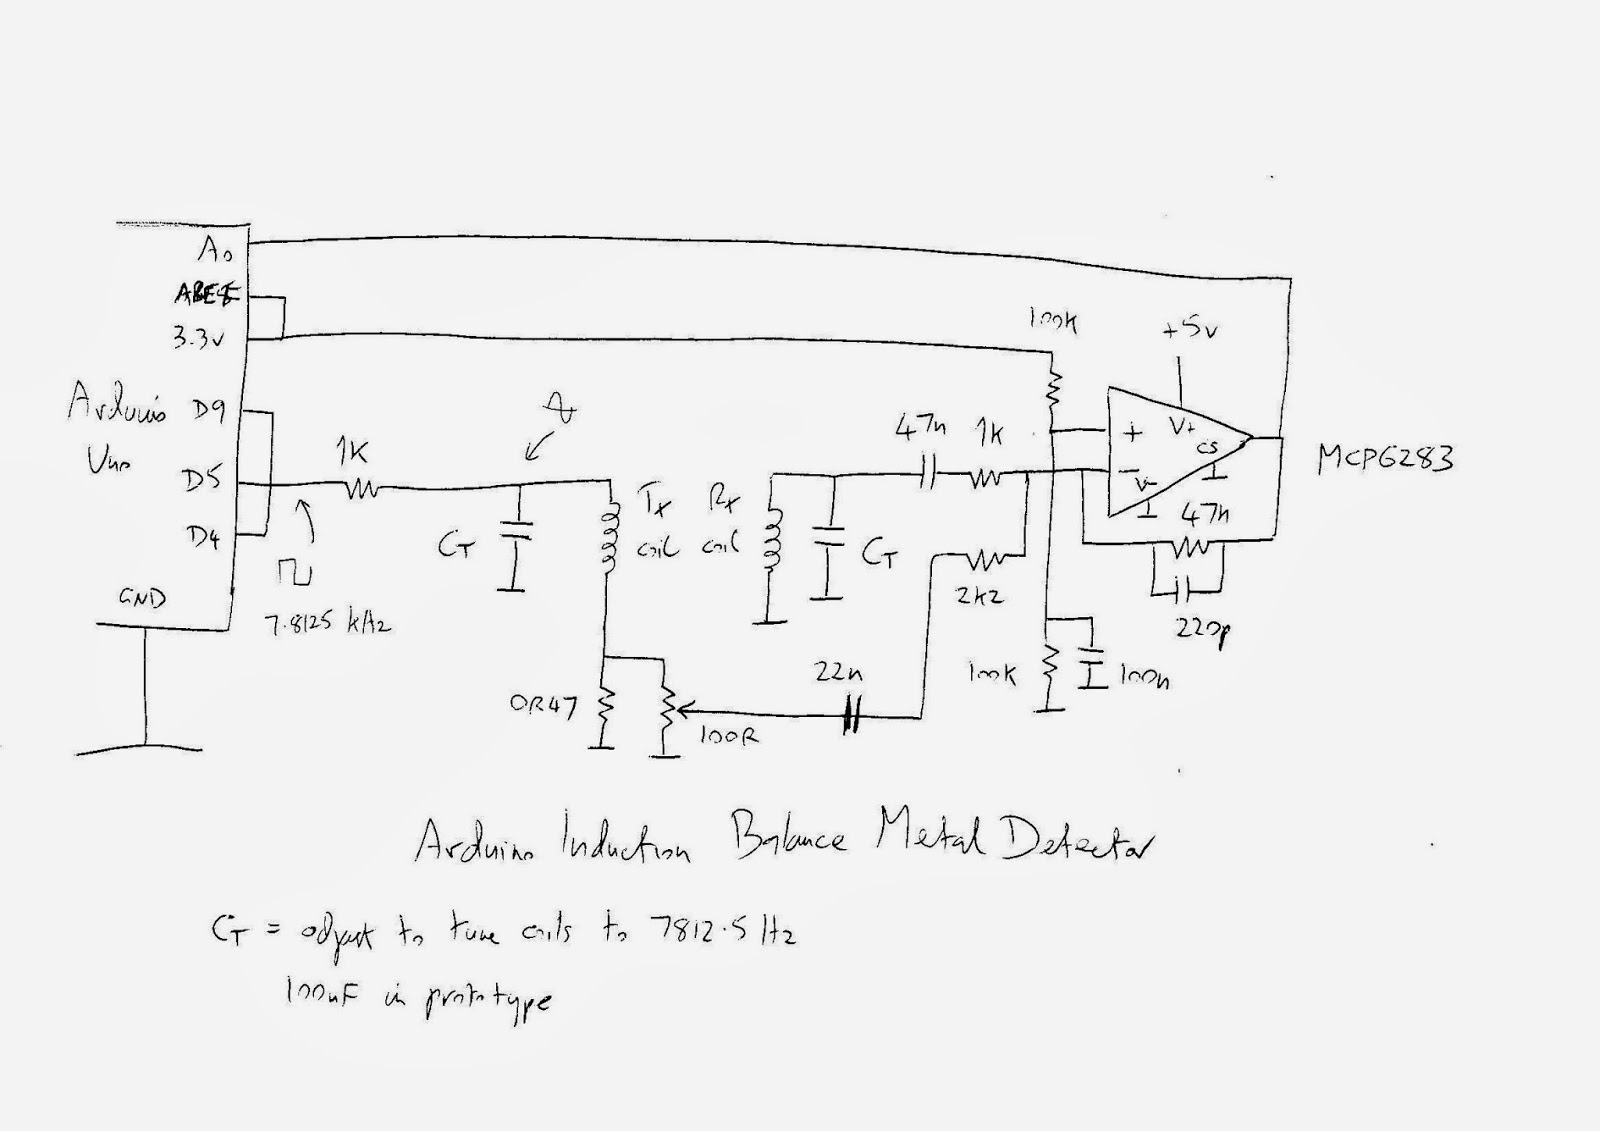 A0
AREF
3.3v
Arduino
Uno
D9
D5
D4
GND
1K
7.8125 kHz
CT
Tx
coil
Rx
coil
CT
0R47
100R
22n
47n
1K
2k2
100K
+5v
+
V+
CS
-
V-
MCP6283
47n
220p
100K
100n
Arduino Induction Balance Metal Detector
CT = adjust to tune coils to 7812.5 Hz
100nF in prototype